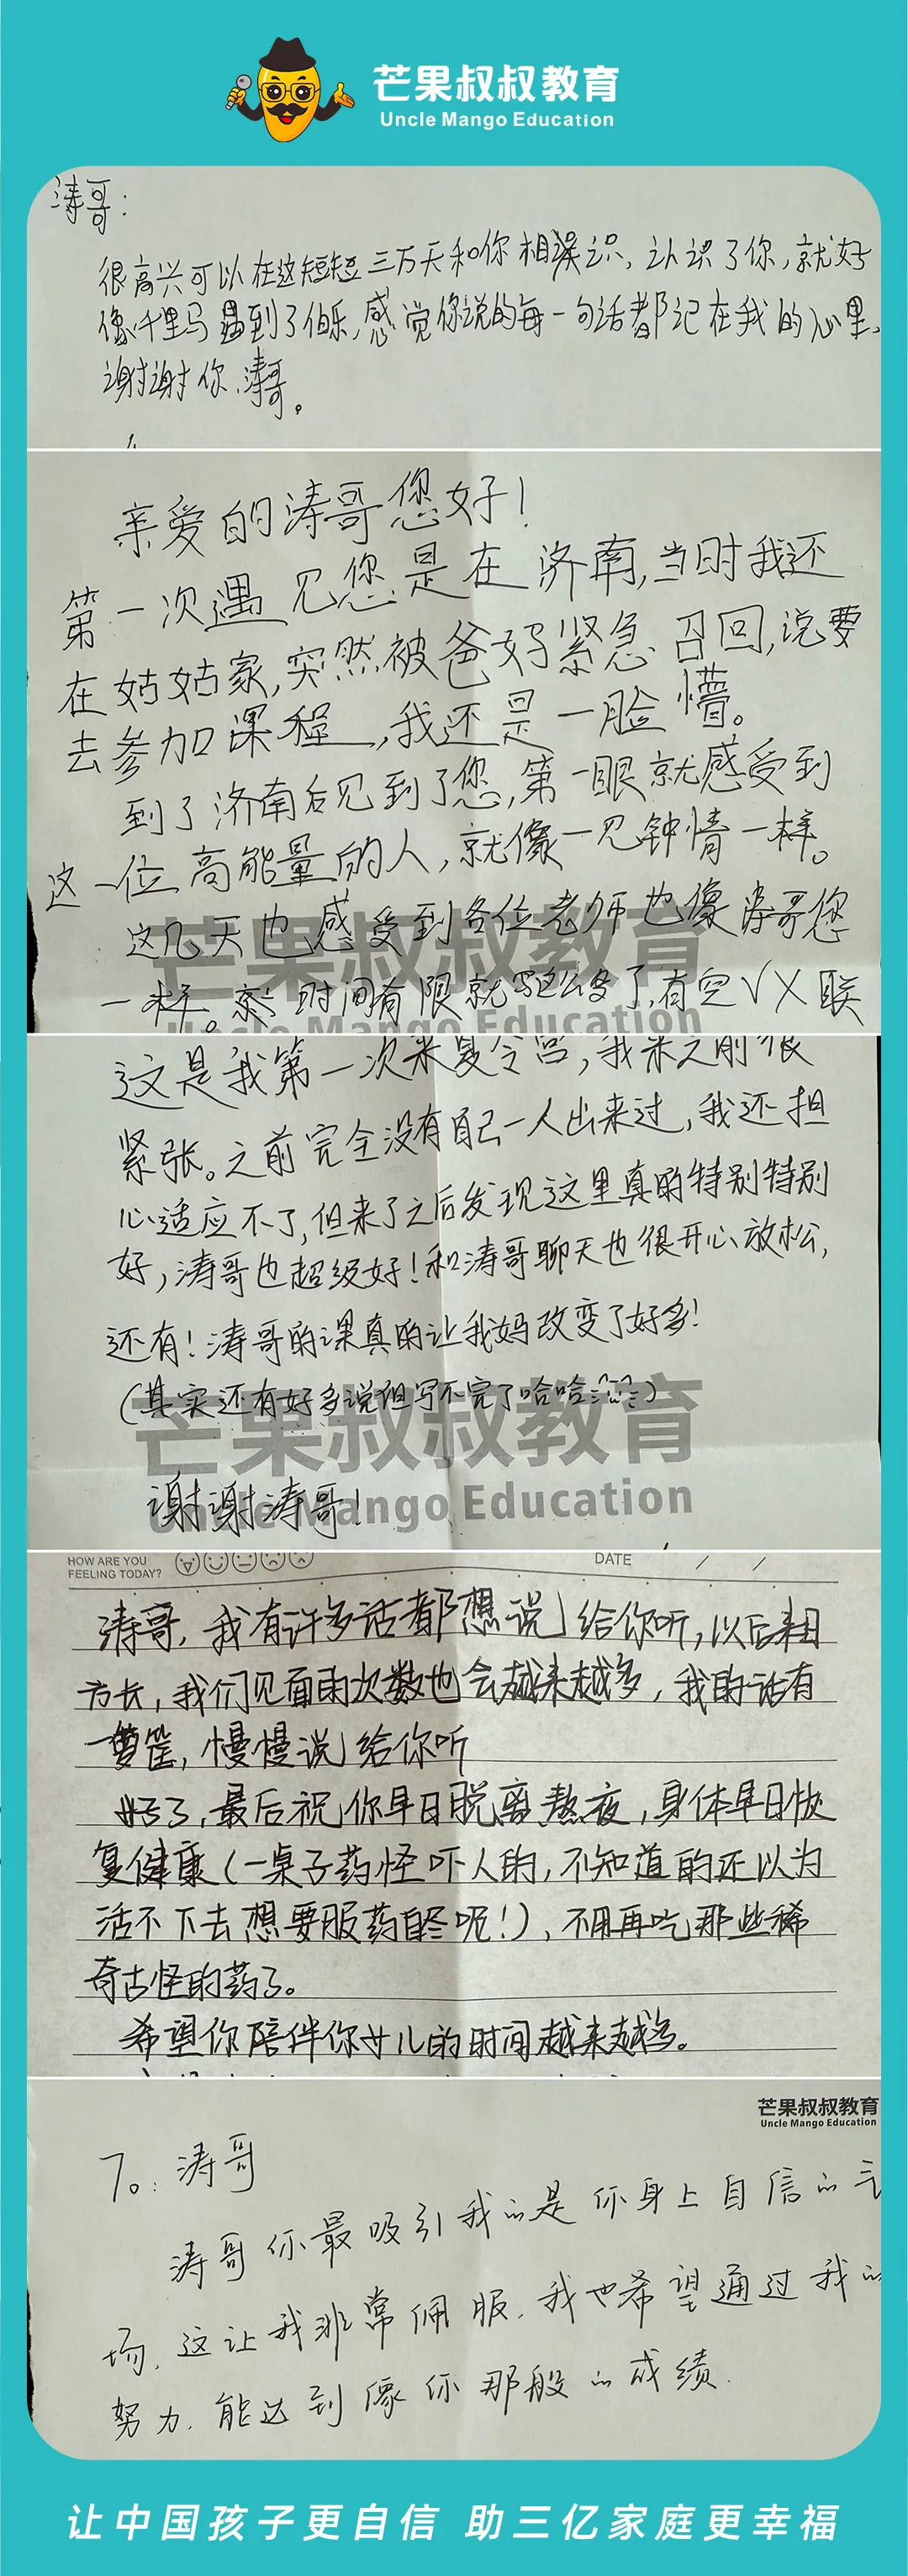 芒果叔叔教育
Uncle Mango Education
涛哥:
很高兴可以在这短短三万天和你相识,认识了你,就好
像千里马遇到了伯乐,感觉你说的每一句话都记在我的心里,
谢谢你,涛哥。
亲爱的涛哥您好!
第一次遇见您是在济南,当时我还
在姑姑家,突然被爸妈紧急召回,说要
去参加课程,我还是一脸懵。
到了济南后见到了您,第一眼就感受到
这一位高能量的人,就像一见钟情一样。
这几天也感受到各位老师也像涛哥您
一样。时间有限就写这么多了,有空VX联
芒果叔叔教育
Uncle Mango Education
这是我第一次来夏令营,我来之前很
紧张。之前完全没有自己一人出来过,我还担
心适应不了,但来了之后发现这里真的特别特别
好,涛哥也超级好!和涛哥聊天也很开心、放松,
还有!涛哥的课真的让我妈改变了好多!
(其实还有好多说但写不完了哈哈)
谢谢涛哥!
芒果叔叔教育
Uncle Mango Education
HOW ARE YOU
FEELING TODAY?
DATE / /
涛哥,我有许多话都想说给你听,以后来日
方长,我们见面的次数也会越来越多,我的话有
一箩筐,慢慢说给你听
好了,最后祝你早日脱离熬夜,身体早日恢
复健康(一桌子药怪吓人的,不知道的还以为
活不下去想要服药自尽呢!),不用再吃那些稀
奇古怪的药了。
希望你陪伴你女儿的时间越来越多。
芒果叔叔教育
Uncle Mango Education
7。:涛哥
涛哥你最吸引我的是你身上自信的气
场,这让我非常佩服.我也希望通过我的
努力,能达到像你那般的成绩.
让中国孩子更自信 助三亿家庭更幸福